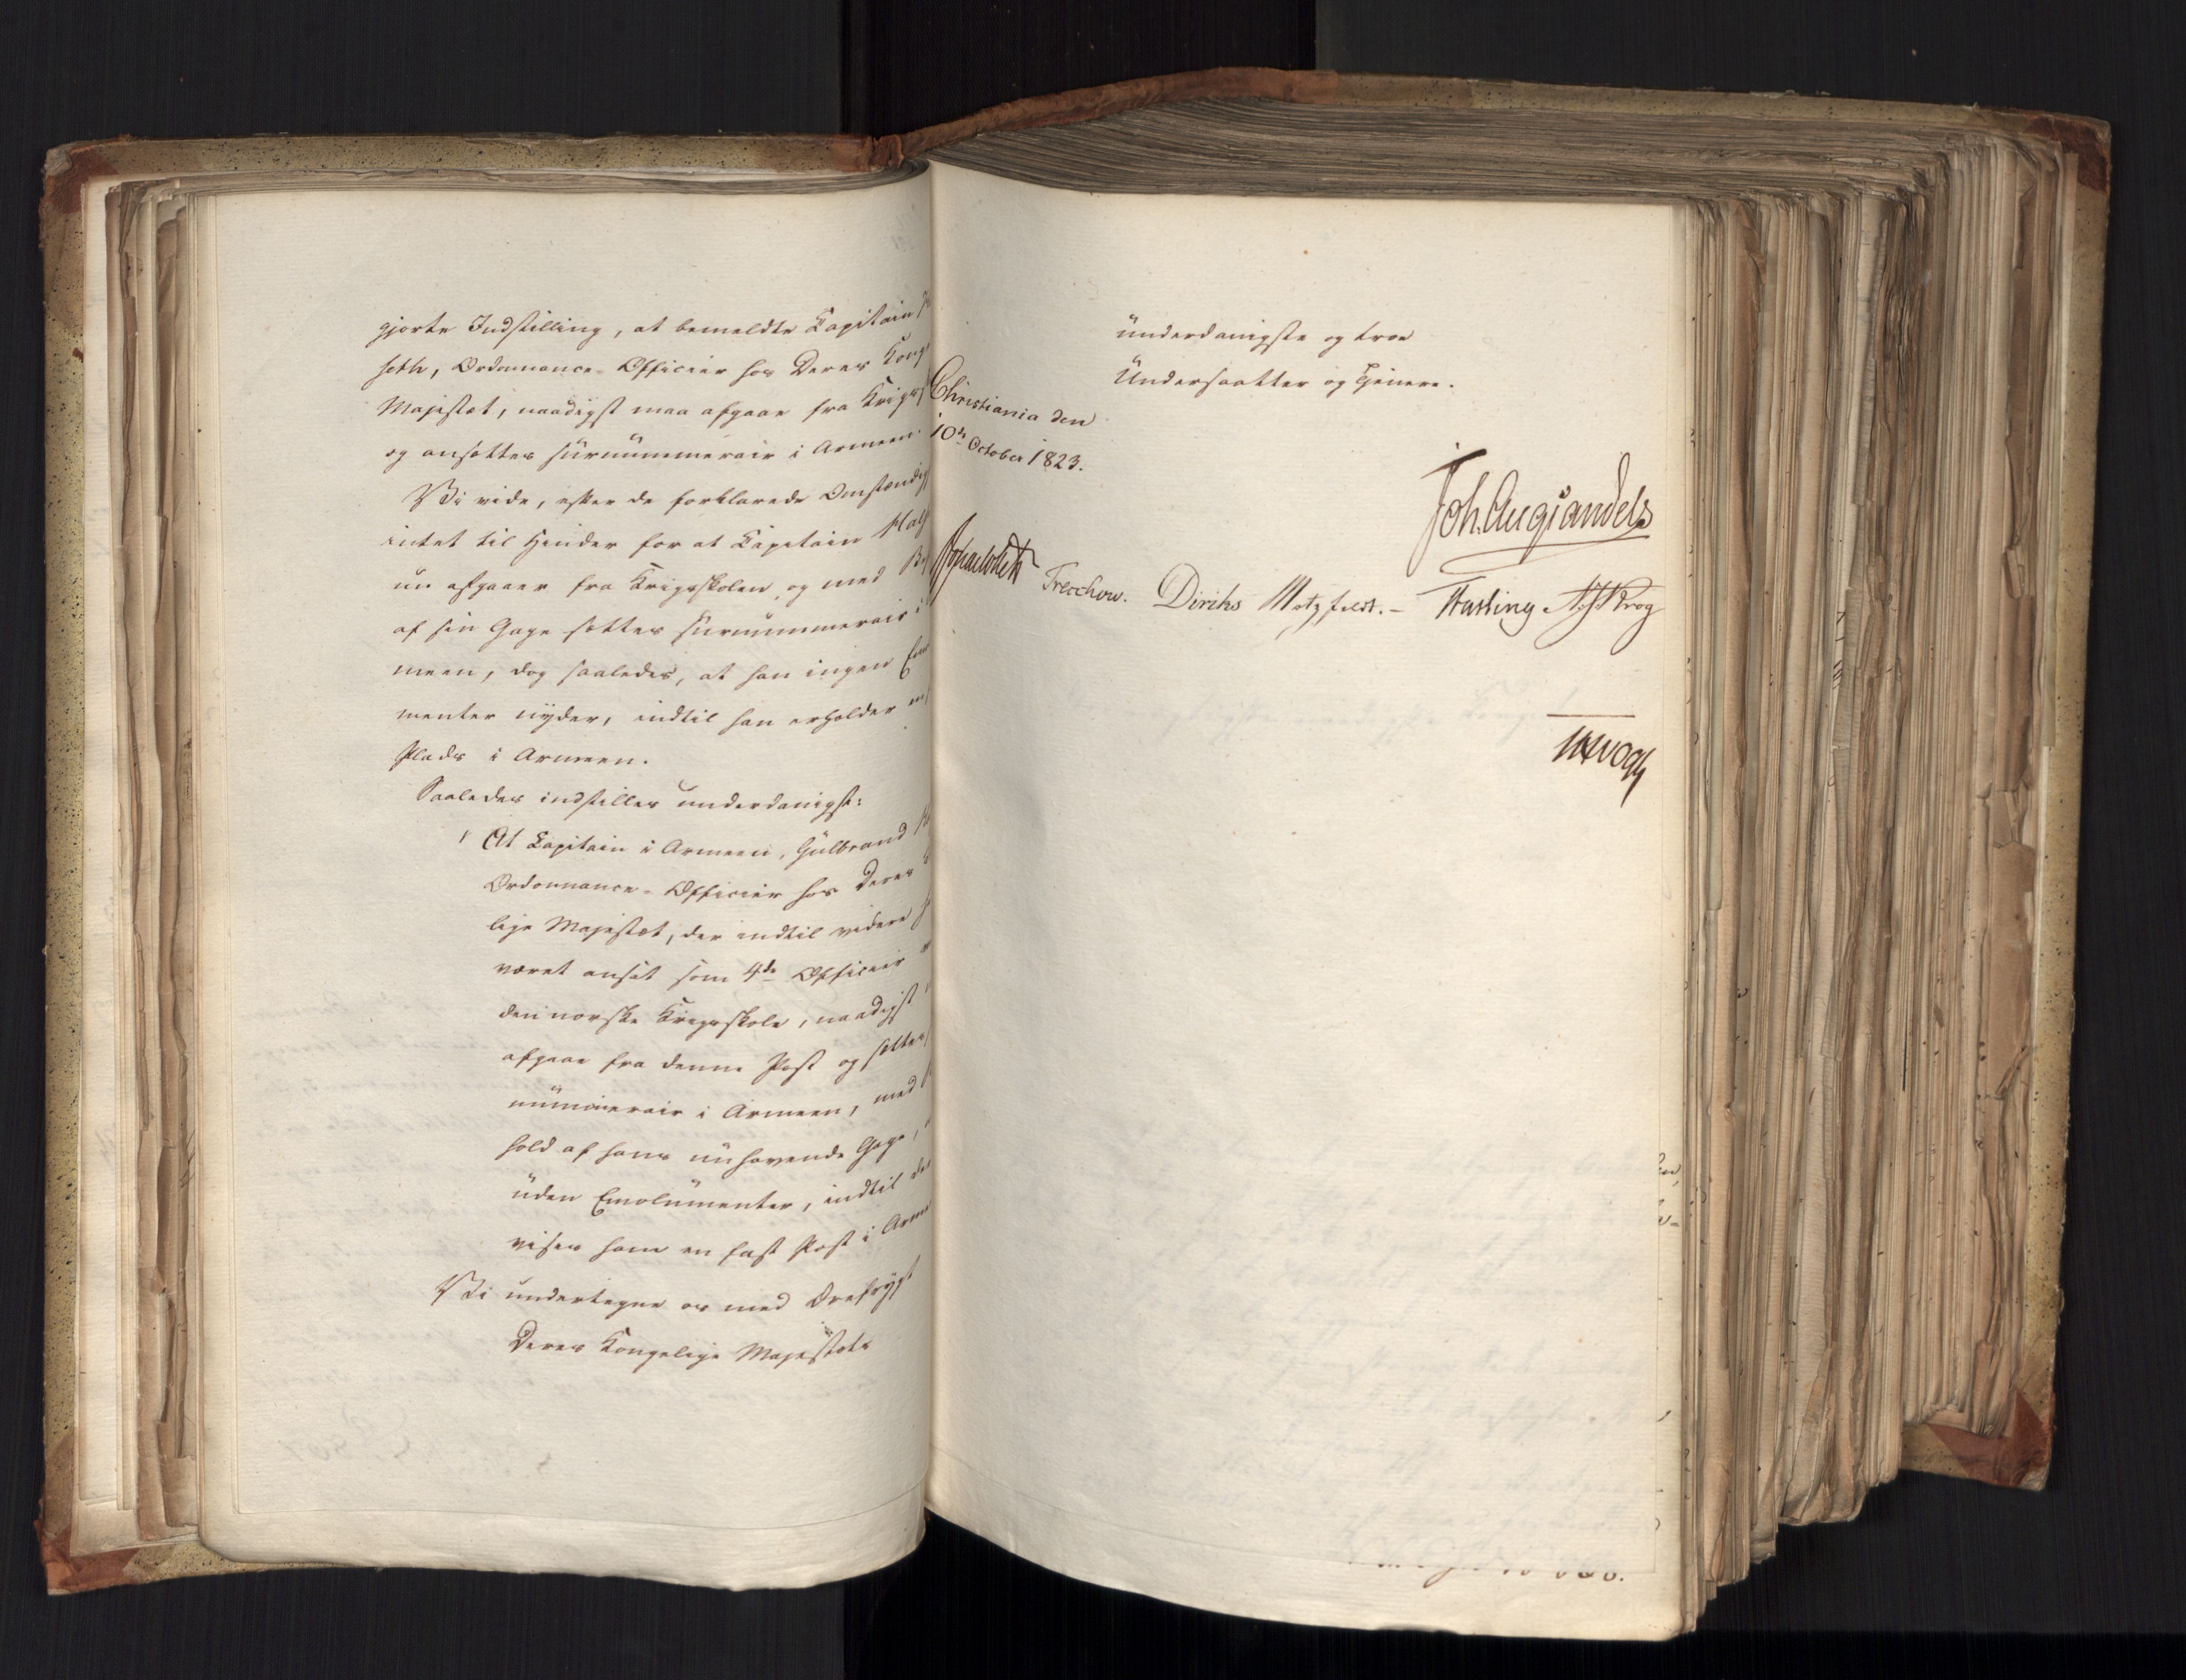 gjorte Indstilling, at bemeldte Capitain
seth, Ordonnance-Officier hos Deres Kong
Majestæt, naadigst maa afgaae fra Krigs
og ansættes surnummerair i Armeen.
Vi vide, efter de forklarede Omstændig
intet til Hinder for at Capitain
nu afgaaer fra Krigsskolen, og med
af sin Gage sættes surnummerair i
meen, dog saaledes, at han ingen Emo
menter nyder, indtil han erholder
Plads i Armeen.
Saaledes indstilles underdanigst:
At Capitain i Armeen, Gulbrand
Ordonnance-Officier hos Deres
lige Majestæt, der indtil videre
været ansat som 4de Officier
den norske Krigsskole, naadigst
afgaae fra denne Post og sættes
nummerair i Armeen, med
hold af hans nuhavende Gage,
uden Emolumenter, indtil der
vises ham en fast Post i Arme
Vi undertegne os med Ærefrygt
Deres Kongelige Majestæts
underdanigste og troe
Undersaatter og Tjenere.
Christiania den
10de October 1823.
Joh. Aug Sandels
Treschow. Diriks Motzfeldt. – Fasting Krog
Vogt